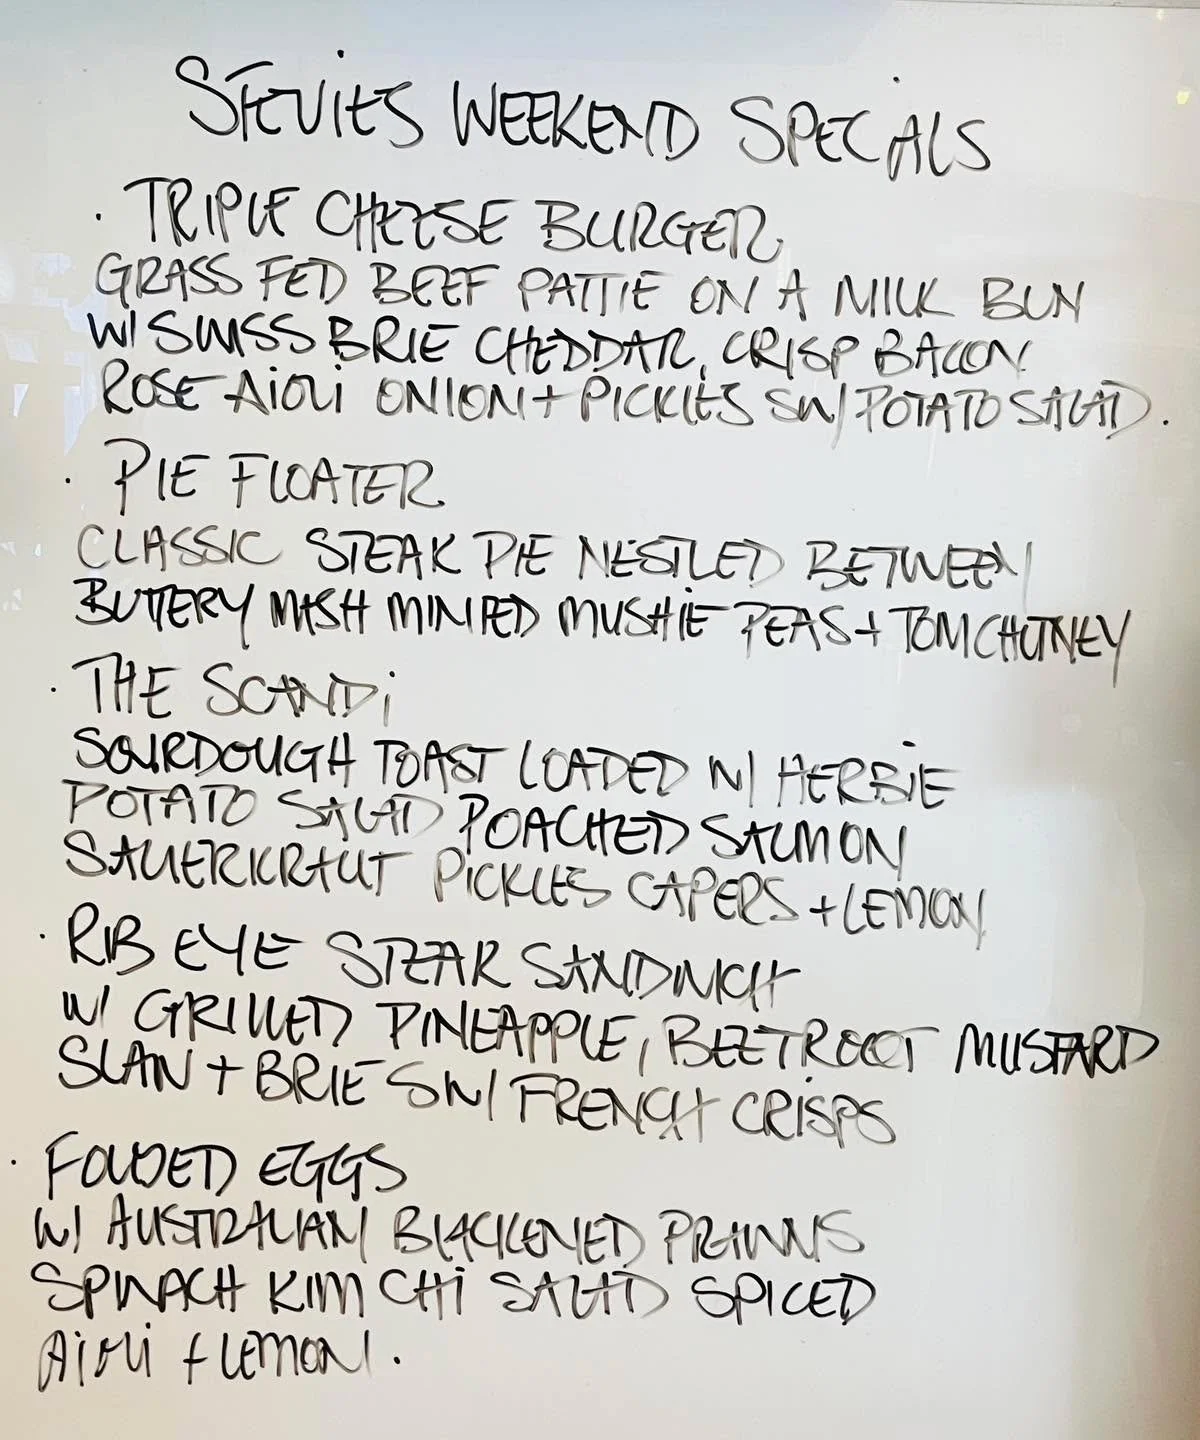 STEVIES WEEKEND SPECIALS
· TRIPLE CHEESE BURGER
GRASS FED BEEF PATTIE ON A MILK BUN
W/ SWISS BRIE CHEDDAR, CRISP BACON
ROSE AIOLI ONION + PICKLES SW/ POTATO SALAD.
· PIE FLOATER
CLASSIC STEAK PIE NESTLED BETWEEN
BUTTERY MASH MINTED MUSHIE PEAS + TOM CHUTNEY
· THE SCANDI
SOURDOUGH TOAST LOADED W/ HERBIE
POTATO SALAD POACHED SALMON
SAUERKRAUT PICKLES CAPERS + LEMON
· RIB EYE STEAK SANDWICH
W/ GRILLED PINEAPPLE, BEETROOT MUSTARD
SLAW + BRIE SW/ FRENCH CRISPS
· FOLDED EGGS
W/ AUSTRALIAN BLACKENED PRAWNS
SPINACH KIM CHI SALAD SPICED
AIOLI + LEMON.